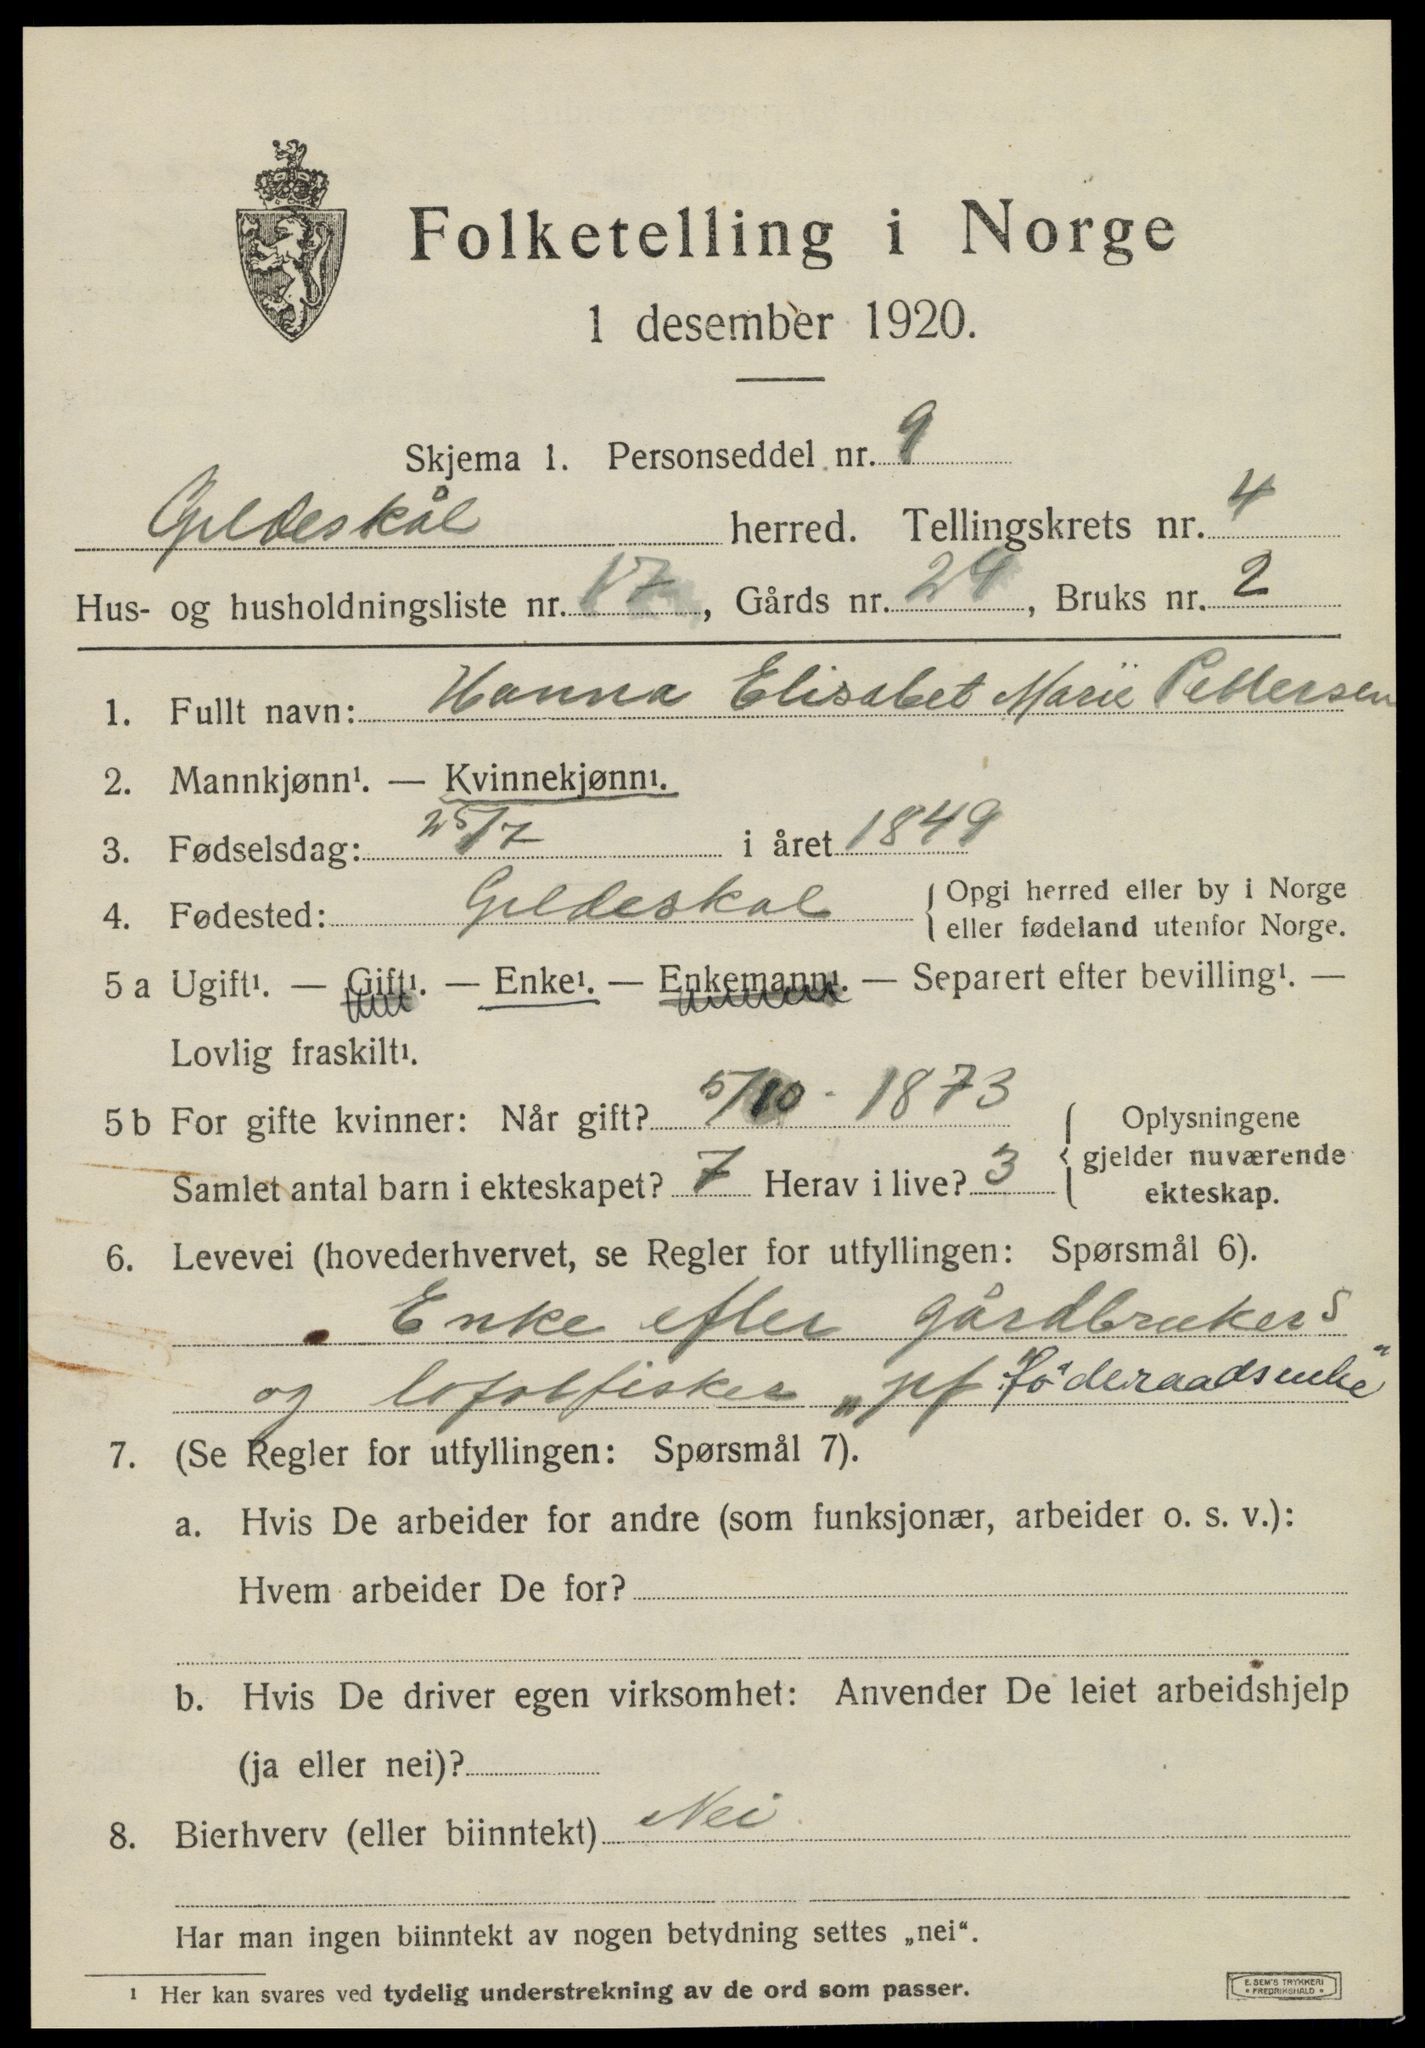 Folketelling i Norge
1 desember 1920.
Skjema 1. Personseddel nr. 9
Gildeskål herred. Tellingskrets nr. 4
Hus- og husholdningsliste nr. 17, Gårds nr. 29, Bruks nr. 2
1. Fullt navn: Hanna Elisabet Marie Pettersen
2. Mannkjønn¹. — Kvinnekjønn¹.
3. Fødselsdag: 25/7 i året 1849
4. Fødested: Gildeskål { Opgi herred eller by i Norge
eller fødeland utenfor Norge.
5 a Ugift¹. — Gift¹. — Enke¹. — Enkemann¹. — Separert efter bevilling¹. —
Lovlig fraskilt¹.
5 b For gifte kvinner: Når gift? 5/10 - 1873
Samlet antal barn i ekteskapet? 7 Herav i live? 3
{ Oplysningene
gjelder nuværende
ekteskap.
6. Levevei (hovederhvervet, se Regler for utfyllingen: Spørsmål 6).
Enke efter gårdbrukers
og lofotfisker „pf „föderaadsenke“
7. (Se Regler for utfyllingen: Spørsmål 7).
a. Hvis De arbeider for andre (som funksjonær, arbeider o. s. v.):
Hvem arbeider De for?
b. Hvis De driver egen virksomhet: Anvender De leiet arbeidshjelp
(ja eller nei)?
8. Bierhverv (eller biinntekt) Nei
Har man ingen biinntekt av nogen betydning settes „nei“.
¹ Her kan svares ved tydelig understrekning av de ord som passer.
E. SEM'S TRYKKERI
• FREDRIKSHALD •